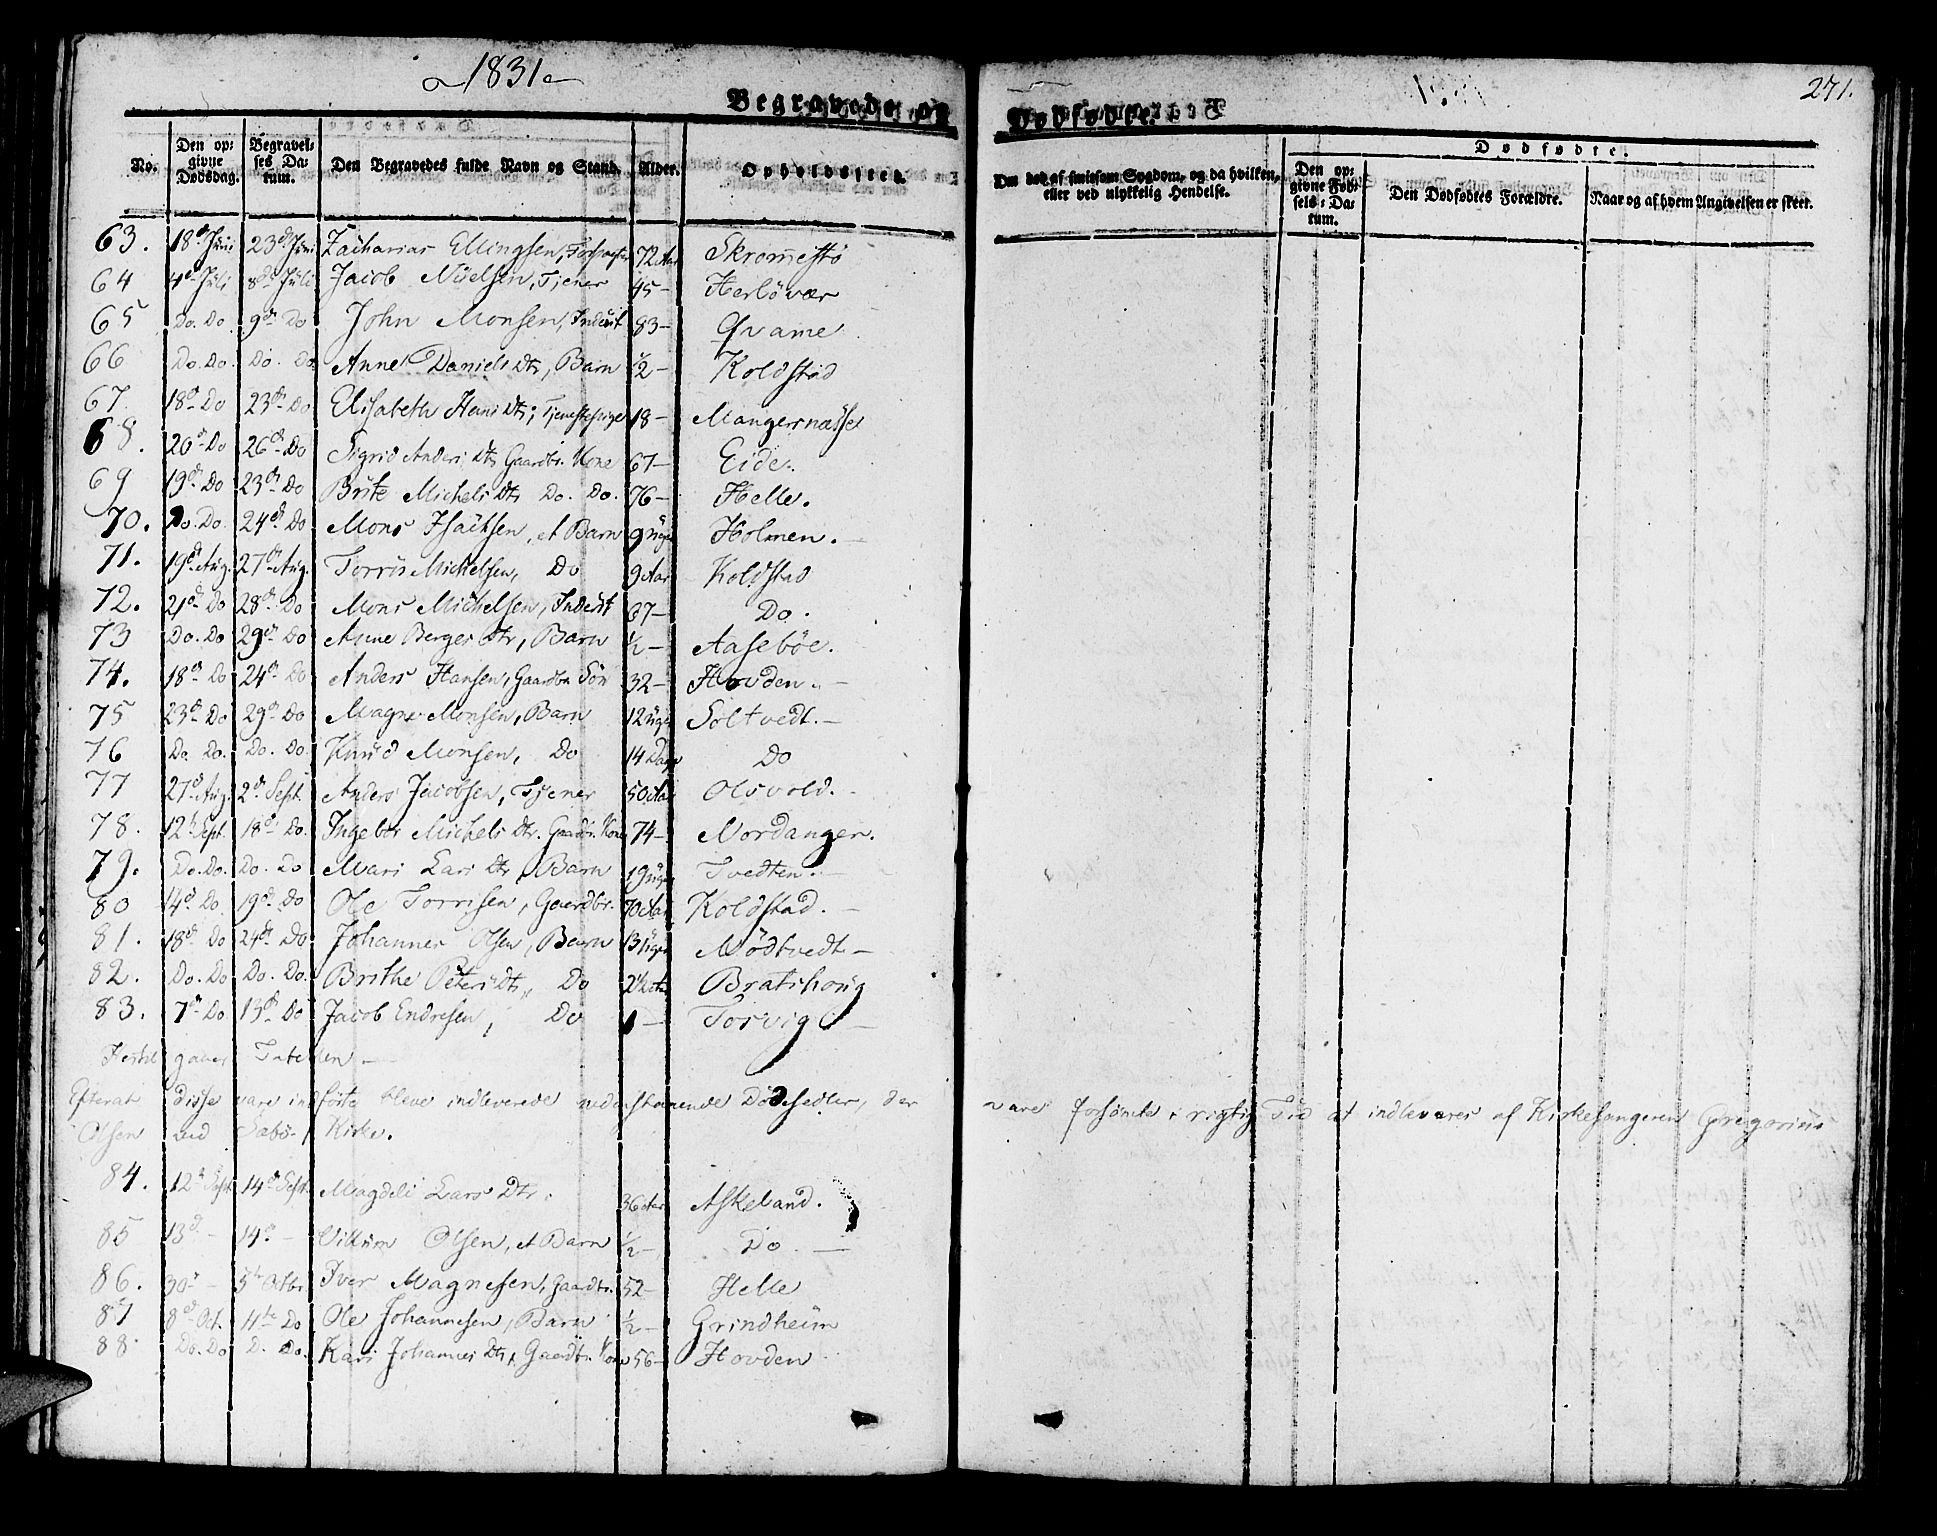 1831
271.
Begravede og Dødfødte.
No.
Den opgivne Dødsdag.
Begravelses Datum.
Den Begravedes fulde Navn og Stand.
Alder.
Opholdssted.
Om død af smitsom Sygdom, og da hvilken, eller ved ulykkelig Hendelse.
Dødfødte.
Den opgivne Fødsels-Datum.
Den Dødfødtes Forældre.
Naar og af hvem Angivelsen er skeet.
63. 18d Juni 23d Juni Zacharias Ellingsen, 72 Aar Skromestø
64 4d Juli 8d Juli Jacob Nielsen, Tjener 45- Herløvær
65 Do. Do. 9de Do John Monsen, Inderst 83- Qvame
66 Do. Do. Do. Do. Anne Daniels Dtr, Barn ½- Koldstad
67 18d Do 23de Do Elisabeth Hans Dtr, Tjenestepige 18- Mangersnæsset
68. 20d Do 26de Do Sigrid Anders Dtr Gaardbr. Kone 67- Eide.
69 19d Do 23de Do Brite Michels Dtr Do. Do. 76- Helle.
70. Do. Do. 24de Do Mons Isaksen, et Barn 9 Uger Holmen.-
71. 19d Aug. 27de Aug. Torris Michelsen, Do 9 Aar Koldstad
72. 21d Do 28de Do Mons Michelsen, Inderst 67- Do.
73 Do. Do 29de Do Anne Berges Dtr, Barn ½- Aasebøe.
74. 18de Do 24de Do Anders Hansen, Gaardbr. Søn 32- Hovden.-
75 23de Do 29de Do Magne Monsen, Barn 12 Uger Soltvedt.-
76 Do. Do. Do. Do. Knud Monsen, Do 14 Dage Do
77 27d Aug. 2de Sept. Anders Jacobsen, Tjener 50 Aar Olsvold.-
78. 12te Sept. 18de Do. Ingebor Michels Dtr. Gaardbr. Kone 74- Nordanger.
79. Do. Do. Do. Do Mari Lars Dtr Barn 19 Uger Tvedten.-
80 14d Do. 19de Do Ole Torrisen, Gaardbr. 70 Aar Koldstad.-
81. 18de Do 24de Do Johannes Olsen, Barn 13 Uger Mødtvedt-
82. Do. Do Do. Do. Brithe Peters Dtr, Do 2½ Aar Bratshoug
83. 7de Do 13de Do Jacob Endresen, Do 1- Torvig-
Efterat disse vare indførte bleve indleverede nedenstaaende Dødsedler, der vare forsømte i rigtig Tid at indleveres af Kirkesangeren Gregorius
Olsen ved Sæbø- Kirke.
84. 12te Sept. 14de Sept. Magdeli Lars Dtr. 36 Aar Askeland.
85 13d- 14d- Villum Olsen, et Barn ½- Do.-
86. 30d- 5te Octbr. Iver Magnesen, Gaardbr. 52- Helle
87 8d Oct. 4te Do Ole Johannesen, Barn ½- Grindheim
88 Do. Do D. Do. Kari Johannes Dtr, Gaardbr. Kone 56- Hovden